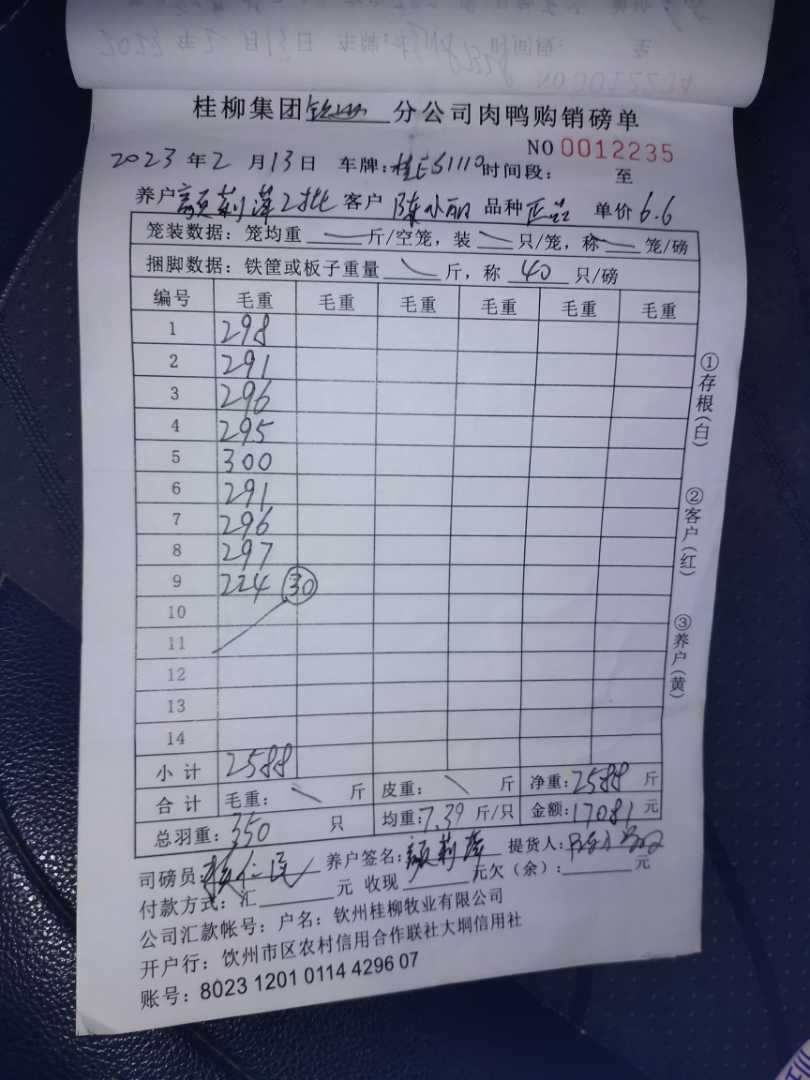 桂柳集团钦州分公司肉鸭购销磅单
NO 0012235
2023年2月13日 车牌:桂ES1110时间段: 至
养户颜莉萍2批 客户 陈小丽 品种 正品 单价6.6
笼装数据:笼均重 斤/空笼,装 只/笼,称 笼/磅
捆脚数据:铁筐或板子重量 斤,称 40 只/磅
编号 毛重 毛重 毛重 毛重 毛重 毛重
1 298
2 291
3 296
4 295
5 300
6 291
7 296
8 297
9 224 30
10
11
12
13
14
小计 2588
合计 毛重: 斤 皮重: 斤 净重:2588 斤
总羽重:350 只 均重:7.39 斤/只 金额:17081 元
司磅员: 养户签名:颜莉萍 提货人:
付款方式:汇 元 收现 元欠(余): 元
公司汇款帐号:户名:钦州桂柳牧业有限公司
开户行:饮州市区农村信用合作联社大垌信用社
账号:8023 1201 0114 4296 07
①存根(白)
②客户(红)
③养户(黄)